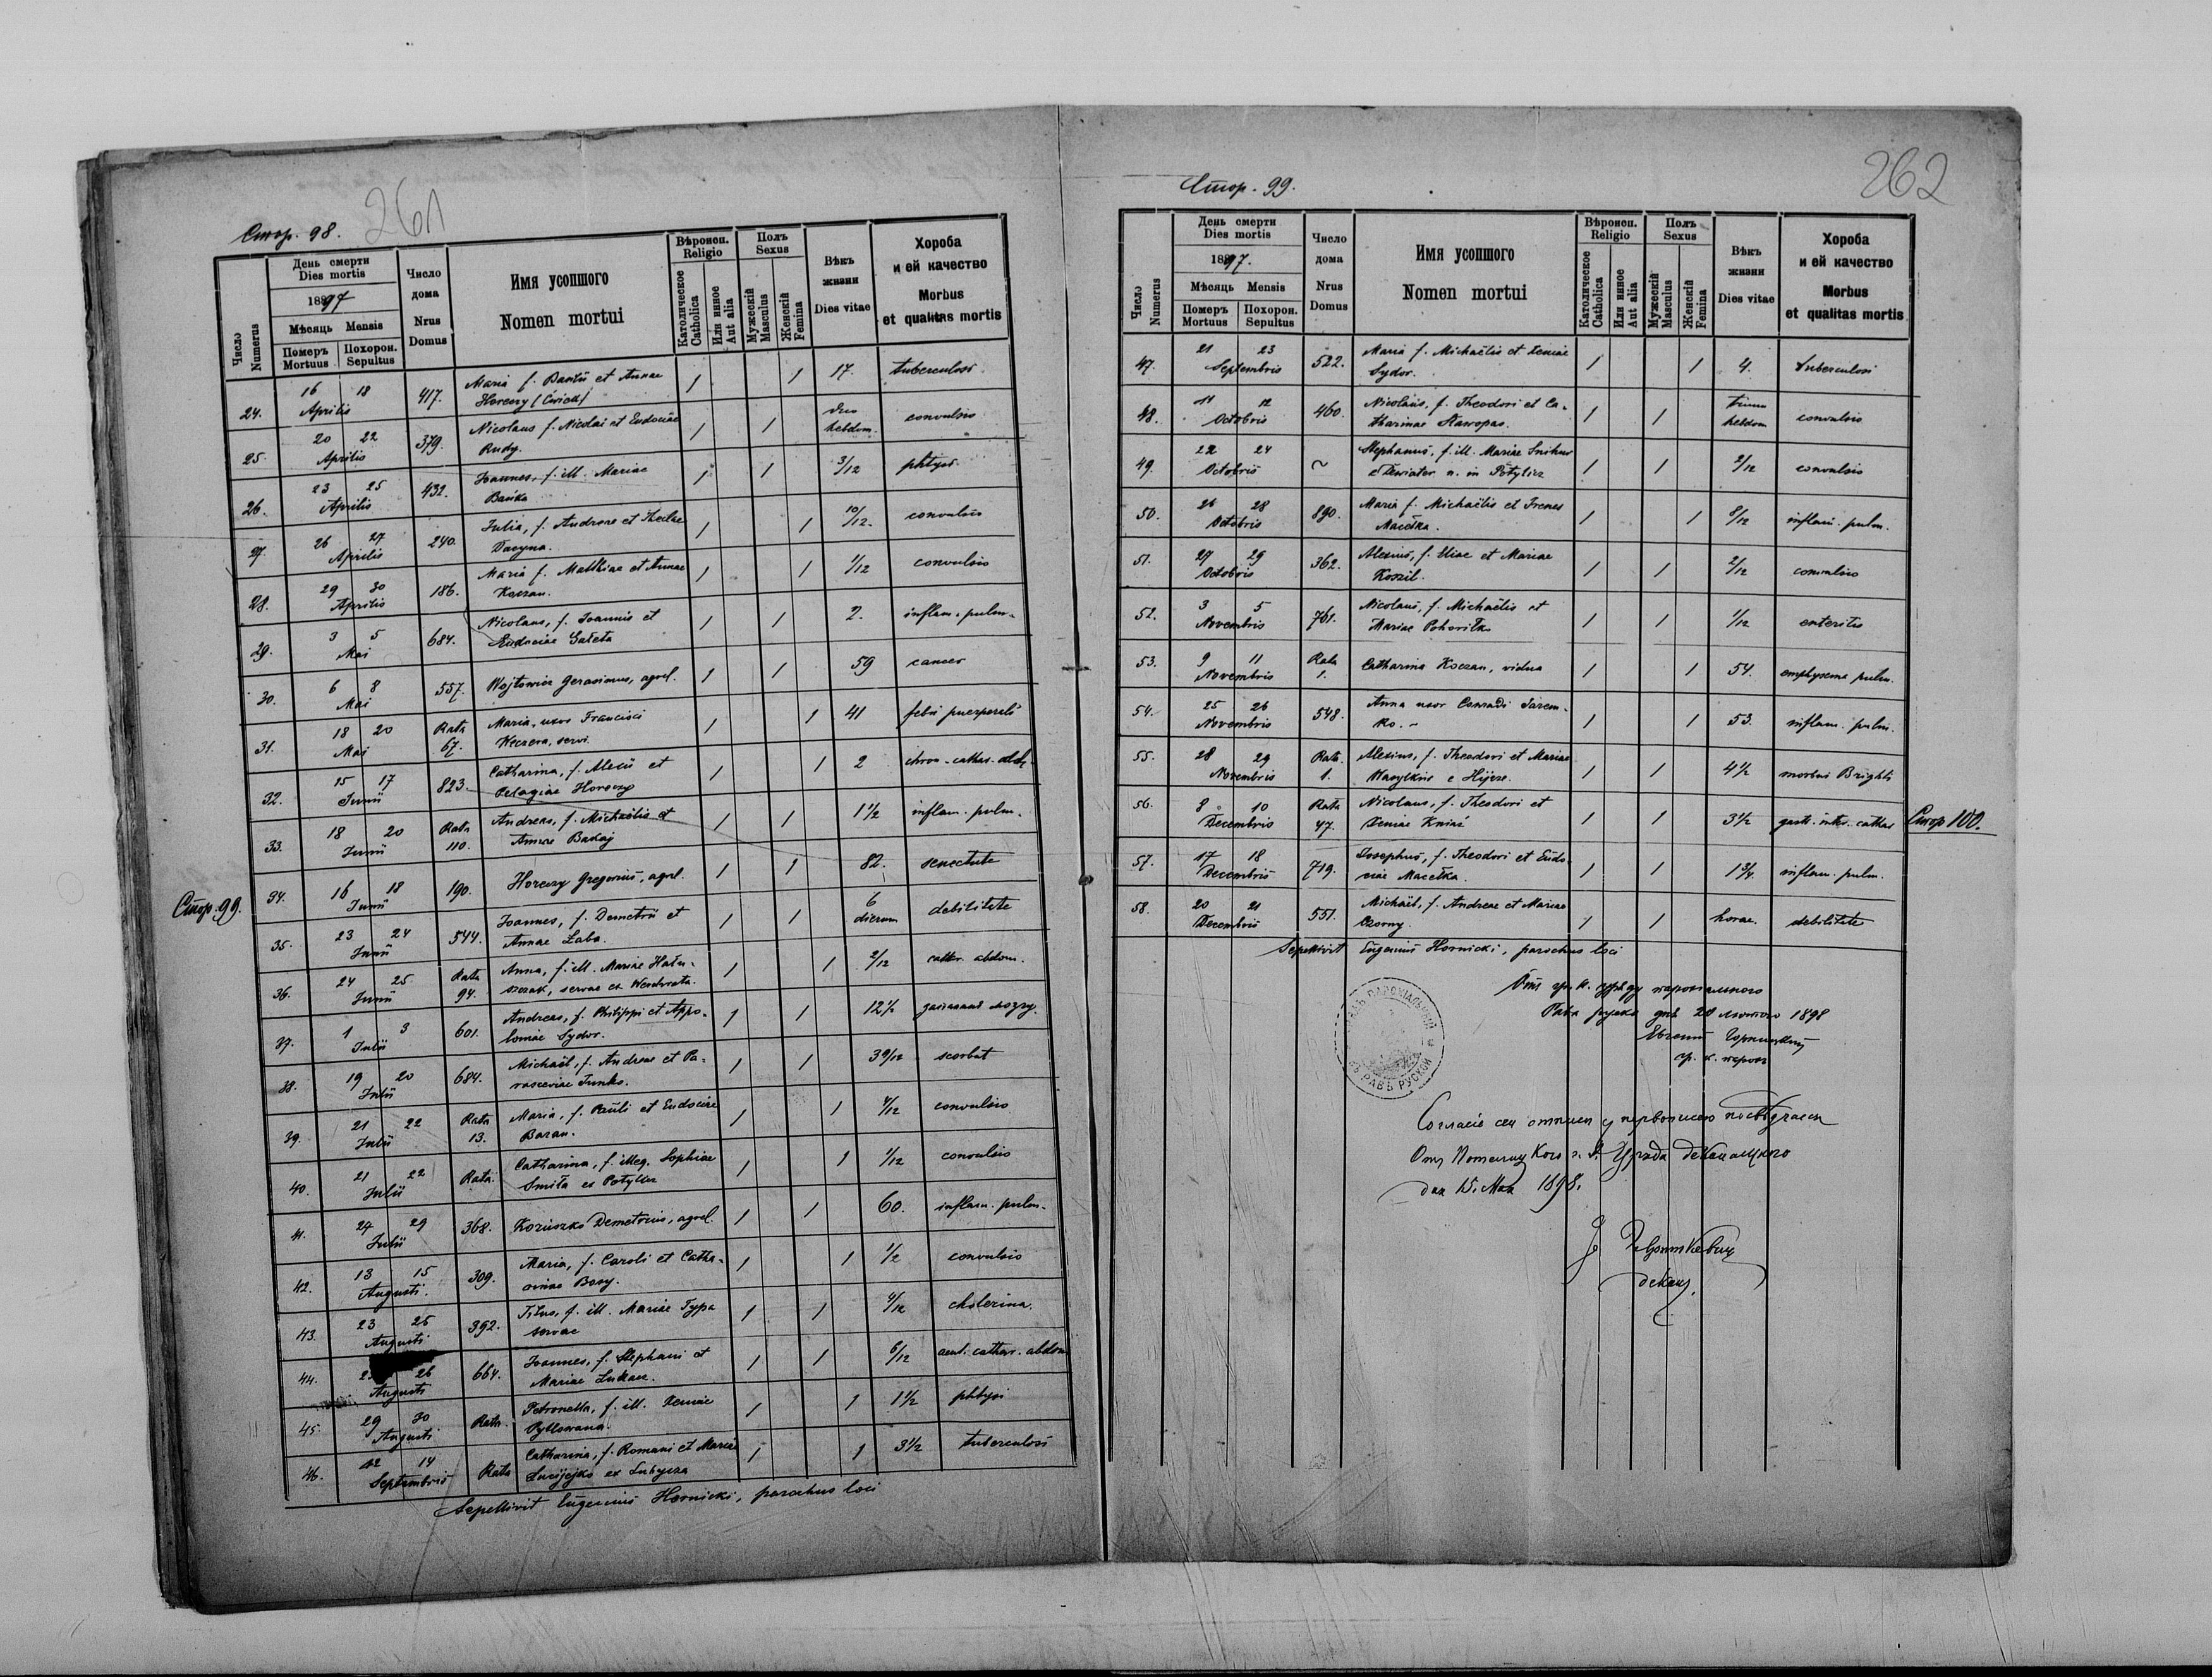 Стор. 98.
261
Число Numerus
День смерти Dies mortis
1897
Мѣсяць Mensis
Померъ Mortuus
Похорон. Sepultus
Число дома Nrus Domus
Имя усопшого
Nomen mortui
Вѣроисп. Religio
Католическое Catholica
Или инное Aut alia
Полъ Sexus
Мужескій Masculus
Женскій Femina
Вѣкъ жизни Dies vitae
Хороба и ей качество
Morbus et qualitas mortis
24. 16 18 Aprilis 417. Maria f. Basilii et Annae 1 1 17. tuberculosi
Horeczy
25. 20 22 Aprilis 379. Nicolaus f. Nicolai et Eudociae 1 1 duo hebdom. convulsio
Rudy.
26. 23 25 Aprilis 432. Joannes, f. ill. Mariae 1 1 3/12 phtysi
Bańka
27. 26 27 Aprilis 240. Julia, f. Andreae et Theclae 1 1 10/12. convulsio
Dacyna.
28. 29 30 Aprilis 186. Maria f. Matthiae et Annae 1 1 1/12 convulsio
Koczan.
29. 3 5 Mai 684. Nicolaus, f. Joannis et 1 1 2. inflam. pulm.
Eudociae Gałeta
30. 6 8 Mai 557. Wojtowicz Gerasimus, agrel. 1 1 59 cancer
31. 18 20 Mai Rata 67. Maria, uxor Francisci 1 1 41 febri puerperali
Weczera, servi.
32. 15 17 Junii 823. Catharina, f. Alexii et 1 1 2 chron. cathar. abd.
Pelagiae Horeczy
33. 18 20 Junii Rata 110. Andreas, f. Michaëlis et 1 1 1 1/2 inflam. pulm.
Annae Bakaj
Стор. 99.
34. 16 18 Junii 190. Horeczy Gregorius, agrel. 1 1 82. senectute
35. 23 24 Junii 544. Joannes, f. Demetrii et 1 1 6 dierum debilitate
Annae Łaba.
36. 24 25 Junii Rata 94. Anna, f. ill. Mariae Hału- 1 1 2/12 cathr. abdom.
szczak, servae ex
37. 1 3 Julii 601. Andreas, f. Philippi et Appo- 1 1 12 1/2 запаленя мозгу.
loniae Sydor.
38. 19 20 Julii 684. Michaël, f. Andreae et Pa- 1 1 3 9/12 scorbut
rasceviae Funko.
39. 21 22 Julii Rata 13. Maria, f. Pauli et Eudociae 1 1 4/12 convulsio
Baran.
40. 21 22 Julii Rata. Catharina, f. illeg. Sophiae 1 1 1/12 convulsio
Smita ex Potylicz
41. 24 29 Julii 368. Koziuszko Demetrius, agrel. 1 1 60. inflam. pulm.
42. 13 15 Augusti. 309. Maria, f. Caroli et Catha- 1 1 1/2 convulsio
rinae Bosy.
43. 23 25 Augusti 392. Titus, f. ill. Mariae Typa 1 1 4/12 cholerina.
servae
44. 26 Augusti 664. Joannes, f. Stephani et 1 1 6/12 acut. cathar. abdom
Mariae Łukacz.
45. 29 30 Augusti Rata. Petronella, f. ill. Xeniae 1 1 1 1/2 phtysi
46. 12 14 Septembris Rata Catharina, f. Romani et Mariae 1 1 3 1/2 tuberculosi
ex Lubycza
Sepellivit Eugenius Hornicki, parochus loci
Стор. 99.
262
Число Numerus
День смерти Dies mortis
1897.
Мѣсяць Mensis
Померъ Mortuus
Похорон. Sepultus
Число дома Nrus Domus
Имя усопшого
Nomen mortui
Вѣроисп. Religio
Католическое Catholica
Или инное Aut alia
Полъ Sexus
Мужескій Masculus
Женскій Femina
Вѣкъ жизни Dies vitae
Хороба и ей качество
Morbus et qualitas mortis
47. 21 23 Septembris 522. Maria f. Michaëlis et Xeniae 1 1 4. tuberculosi
Sydor.
48. 11 12 Octobris 460. Nicolaus, f. Theodori et Ca- 1 1 trium hebdom convulsio
tharinae Haropas.
49. 22 24 Octobris ~ Stephanus, f. ill. Mariae Snihur 1 1 2/12 convulsio
e n. in Potylicz
50. 26 28 Octobris 890. Maria f. Michaëlis et Irenes 1 1 8/12 inflam. pulm.
Macełka.
51. 27 29 Octobris 362. Alexius, f. Eliae et Mariae 1 1 2/12 convulsio
Koszil.
52. 3 5 Novembris 761. Nicolaus, f. Michaëlis et 1 1 1/12 enteritis
Mariae Pohoriłko
53. 9 11 Novembris Rata 1. Catharina Koczan, vidua 1 1 54. emphysema pulm.
54. 25 26 Novembris 548. Anna uxor Conradi Jarem- 1 1 53. inflam. pulm.
ko. ~
55. 28 29 Novembris Rata. 1. Alexius, f. Theodori et Mariae 1 1 4 1/2 morbus Brighti
Wasylkiw e Hijcze.
56. 8 10 Decembris Rata 47. Nicolaus, f. Theodori et 1 1 3 1/2 gastr. intr. cathar
Xeniae Kniaź
Стор 100.
57. 17 18 Decembris 719. Josephus, f. Theodori et Eudo- 1 1 1 3/4. inflam. pulm.
ciae Macełka.
58. 20 21 Decembris 551. Michaël, f. Andreae et Mariae 1 1 horae. debilitate
Czorny.
Sepellivit Eugenius Hornicki, parochus loci
Отъ гр. к. уряду парохіяльного
Рава руска дня 20 лютого 1898
Евгеній Горницкій
гр. к. парохъ
ПАРОХІАЛЬНЫЙ
ВЪ РАВѢ РУСКОЙ
Согласіе сеи отписи съ первописею посвѣдчаеся
Отъ Потелицкого г. к. Уряда деканального
дня 15. Мая 1898.
деканъ.